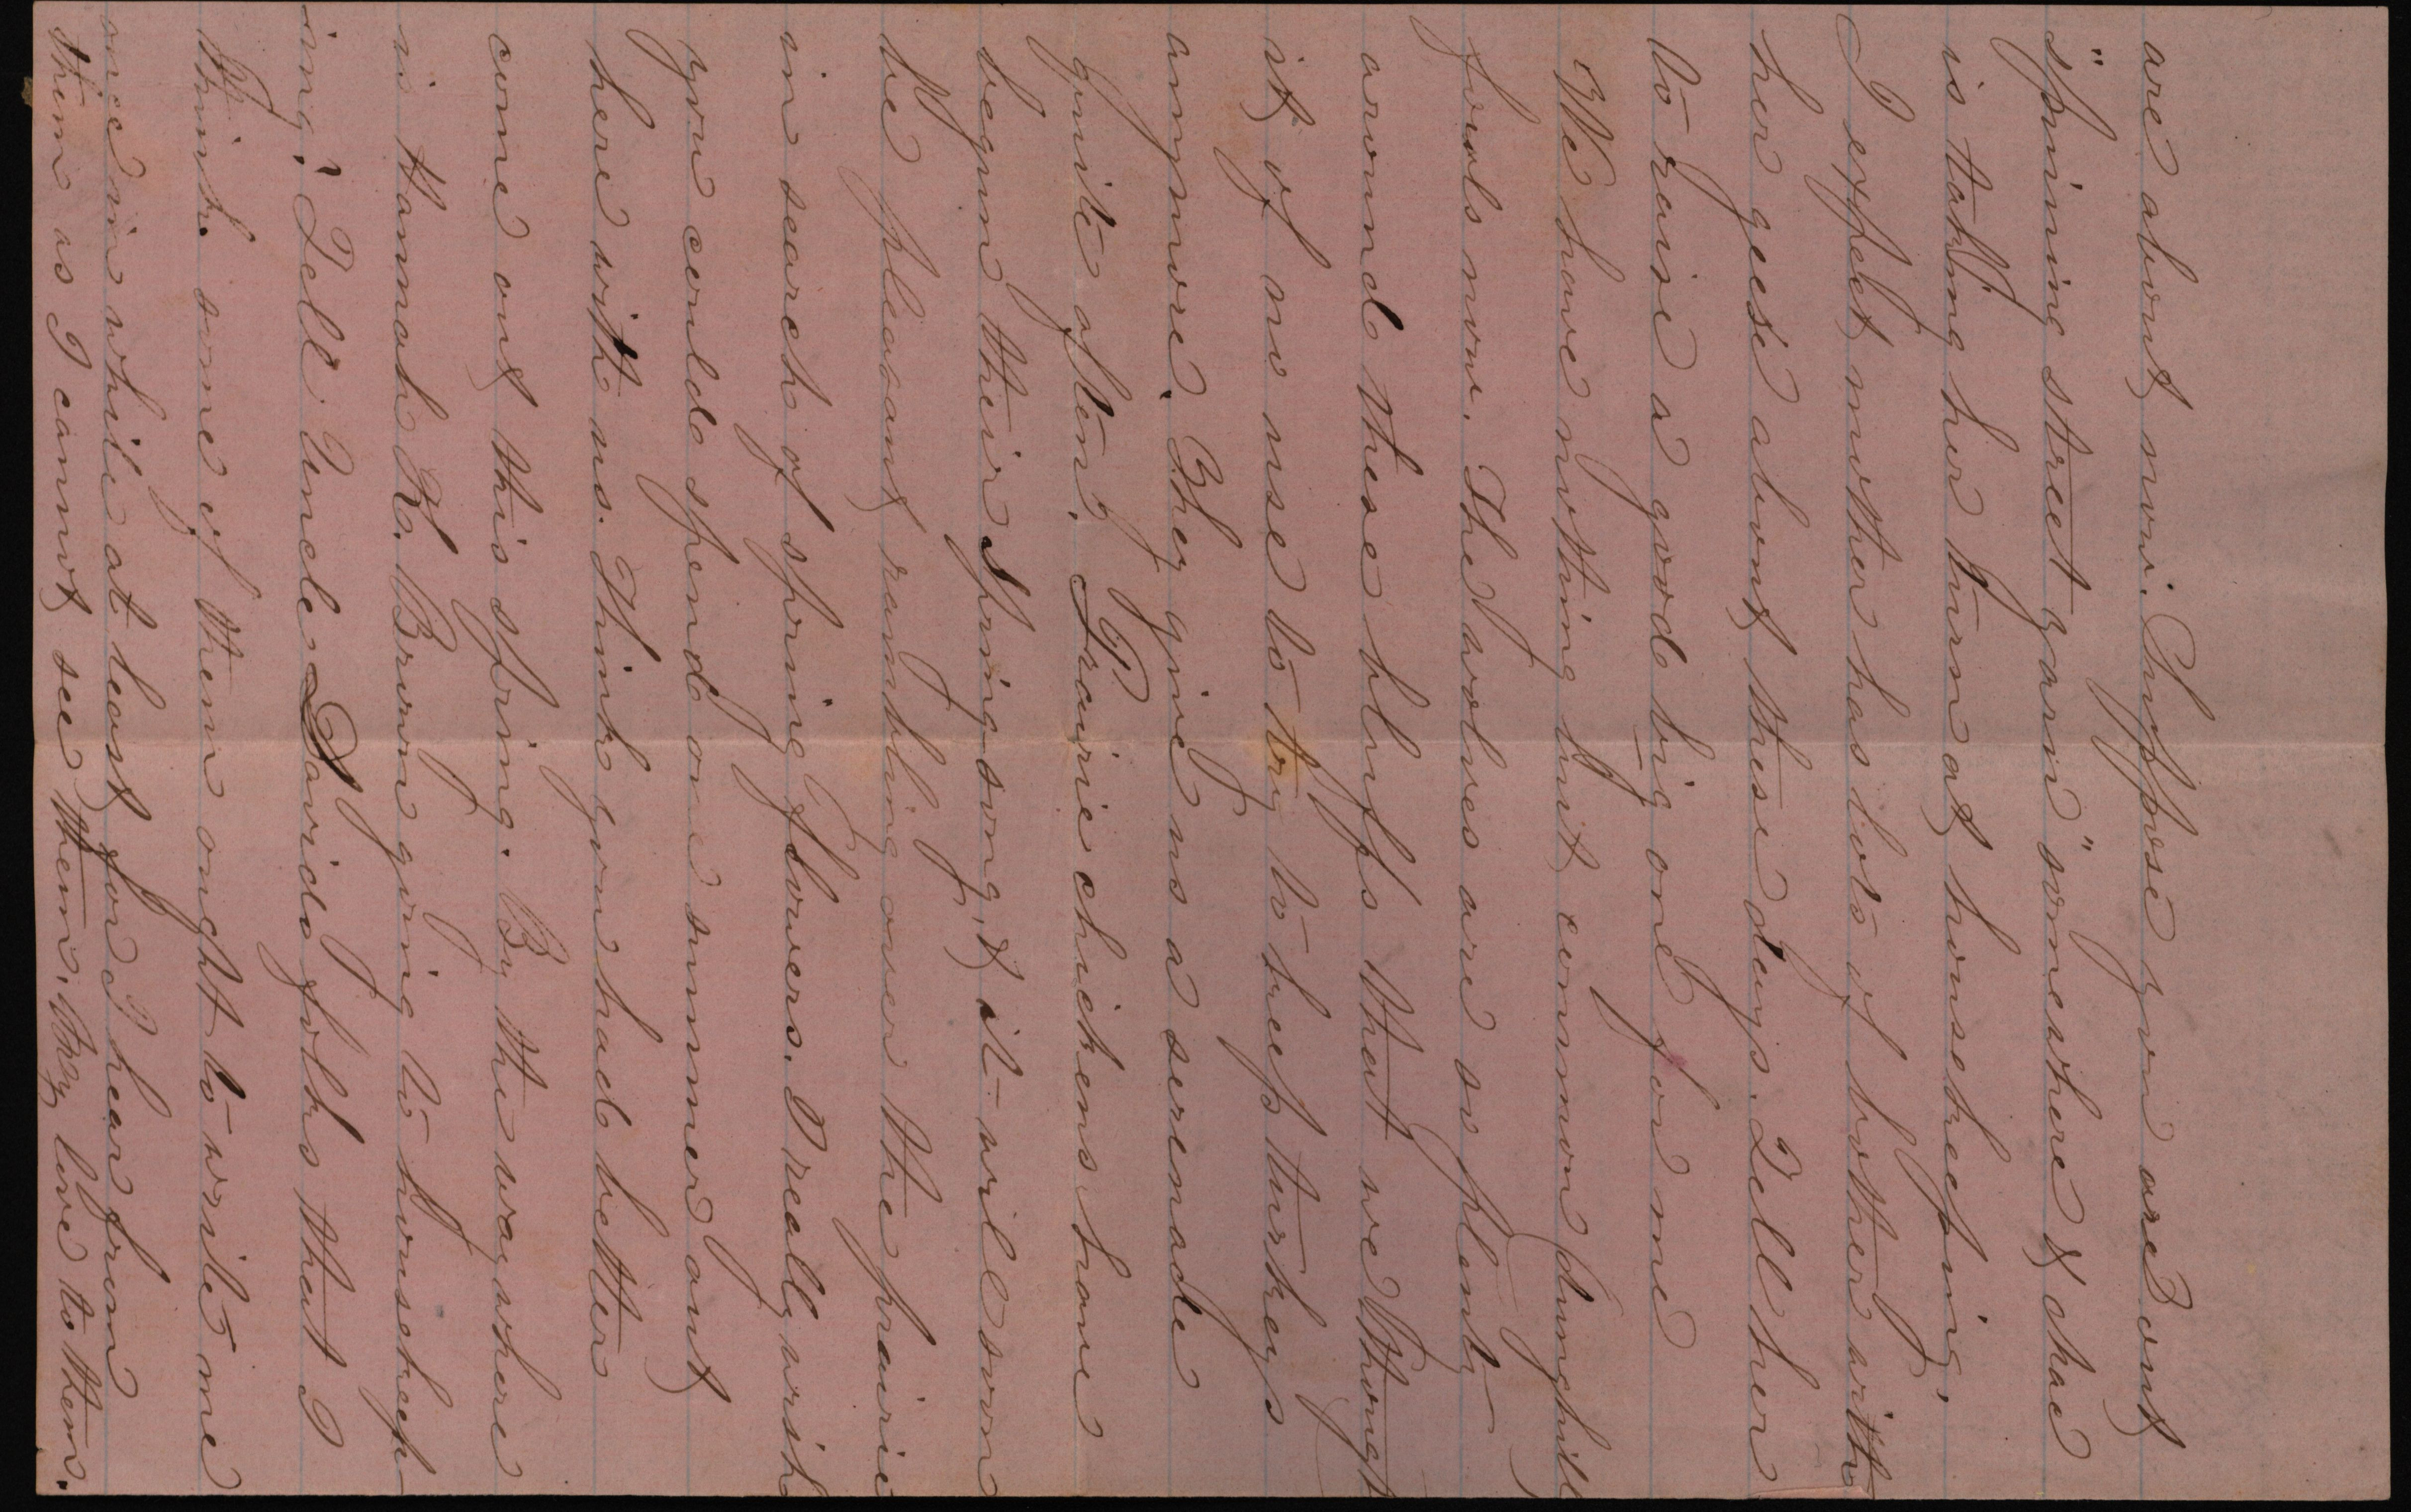 are about now. Suppose you are out
"spining street yarn" somewhere & she
is taking her turn at housekeeping.
I expect mother has lots of bother with
her geese about these days. Tell her
to raise a good big one for me
We have nothing but common dunghill
fowls now. The wolves are so plenty
around these bluffs that we thought
it of no use to try to keep turkeys
anymore. They give us a serenade
quite often. Prairie chickens have
begun their Spring song, & it will soon
be pleasant rambling over the prairie
in search of spring flowers. I really wish
you could spend one summer out
here with us. Think you had better
come out this spring. By the way where
is Hannah K. Brown going to housekeep-
ing? Tell Uncle Davids folks that I
think some of them ought to write me
once in while at least for I hear from
them as I cannot see them. My love to them.